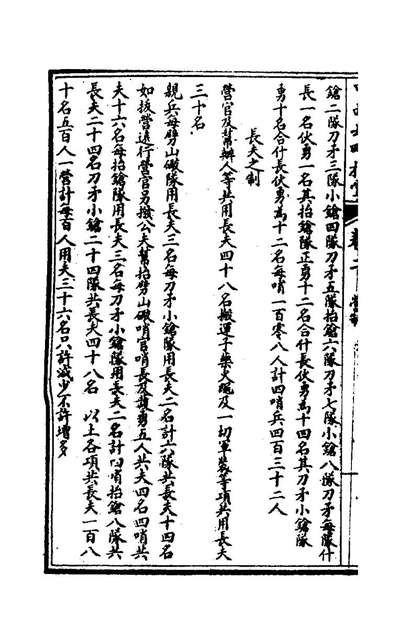 鎗二隊刀矛三隊小鎗四隊刀矛五隊抬鎗六隊刀矛七隊小鎗八隊刀矛每隊什
長一名伙勇一名其抬鎗隊正勇十二名合什長伙勇為十四名其刀矛小鎗隊
勇十名合什長伙勇為十二名每哨一百零八人計四哨兵四百三十二人
長夫之制
營官及幫辦人等共用長夫四十八名搬運子藥火繩及一切軍裝等項共用長夫
三十名
親兵每劈山礮隊用長夫三名每刀矛小鎗隊用長夫二名計六隊共長夫十四名
如拔營遠行營官另撥公夫幫抬劈山礮哨官哨長及護勇五人共夫四名四哨共
夫十六名每抬鎗隊用長夫三名每刀矛小鎗隊用長夫二名計四哨抬鎗八隊共
長夫二十四名刀矛小鎗二十四隊共長夫四十八名 以上各項共長夫一百八
十名五百人一營計每百人用夫三十六名只許減少不許增多